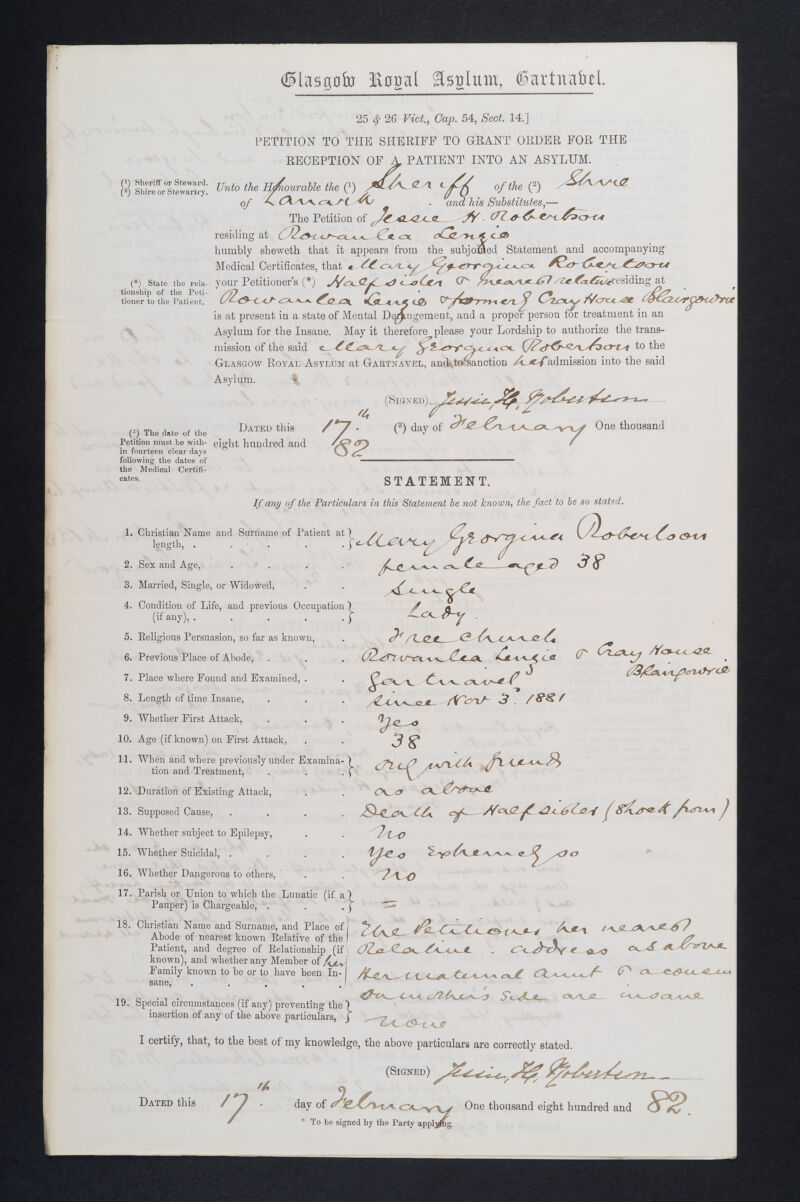 Glasgow Royal Asylum, Gartnabel.
25 & 26 Vict., Cap. 54, Sect. 14.]
PETITION TO THE SHERIFF TO GRANT ORDER FOR THE
RECEPTION OF A PATIENT INTO AN ASYLUM.
(1) Sheriff or Steward.
(2) Shire or Stewartry.
Unto the Honourable the (1) Sheriff of the (2) Shire
of Lanark and his Substitutes,—
The Petition of Jessie H. Robertson
residing at Rowanlea Lenzie
humbly sheweth that it appears from the subjoined Statement and accompanying
Medical Certificates, that Mary Georgina Robertson
(*) State the rela-
tionship of the Peti-
tioner to the Patient.
your Petitioner's (*) Half sister & nearest relative residing at
Rowanlea Lenzie & formerly Cray House Blairgowrie
is at present in a state of Mental Derangement, and a proper person for treatment in an
Asylum for the Insane. May it therefore please your Lordship to authorize the trans-
mission of the said Mary Georgina Robertson to the
GLASGOW ROYAL ASYLUM at GARTNAVEL, and to sanction her admission into the said
Asylum.
(SIGNED) Jessie, H, Robertson
(3) The date of the
Petition must be with-
in fourteen clear days
following the dates of
the Medical Certifi-
cates.
DATED this 17th. (3) day of February One thousand
eight hundred and 82
STATEMENT.
If any of the Particulars in this Statement be not known, the fact to be so stated.
1. Christian Name and Surname of Patient at
length, . . . . . Mary Georgina Robertson
2. Sex and Age, . . . . female aged 38
3. Married, Single, or Widowed, . . Single
4. Condition of Life, and previous Occupation
(if any), . . . . . Lady.
5. Religious Persuasion, so far as known, . Free Church
6. Previous Place of Abode, . . . Rowanlea Lenzie & Cray House
Blairgowrie
7. Place where Found and Examined, . . Gartnavel
8. Length of time Insane, . . . since Nov 3d. 1881
9. Whether First Attack, . . . Yes
10. Age (if known) on First Attack, . . 38
11. When and where previously under Examina-
tion and Treatment, . . . only with friends
12. Duration of Existing Attack, . . as above
13. Supposed Cause, . . . . Death of Half sister (Shock from)
14. Whether subject to Epilepsy, . . No
15. Whether Suicidal, . . . . Yes Extremely so
16. Whether Dangerous to others, . . No
17. Parish or Union to which the Lunatic (if a
Pauper) is Chargeable, . . . =
18. Christian Name and Surname, and Place of
Abode of nearest known Relative of the
Patient, and degree of Relationship (if
known), and whether any Member of her
Family known to be or to have been In-
sane, . . . . .
The Petitioner her nearest
Relative. address as above
Her maternal Aunt & a cousin
on mother's side are insane
19. Special circumstances (if any) preventing the
insertion of any of the above particulars, None
I certify, that, to the best of my knowledge, the above particulars are correctly stated.
(SIGNED) Jessie, H, Robertson
DATED this 17th. day of February One thousand eight hundred and 82.
* To be signed by the Party applying.